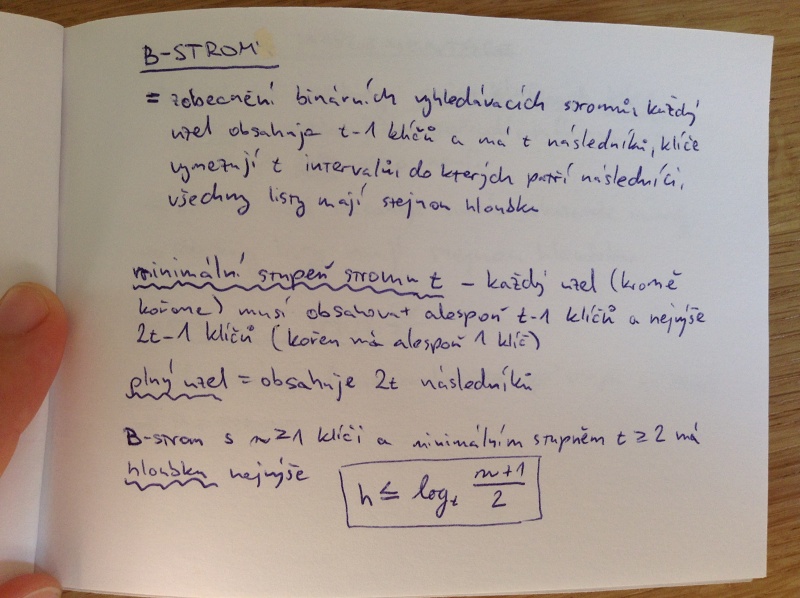 B-STROM
= zobecnění binárních vyhledávacích stromů, každý
uzel obsahuje t-1 klíčů a má t následníků, klíče
vymezují t intervalů, do kterých patří následníci,
všechny listy mají stejnou hloubku
minimální stupeň stromu t - každý uzel (kromě
kořene) musí obsahovat alespoň t-1 klíčů a nejvýše
2t-1 klíčů (kořen má alespoň 1 klíč)
plný uzel = obsahuje 2t následníků
B-strom s n≥1 klíči a minimálním stupněm t≥2 má
hloubku nejvýše h ≤ log_t (n+1)/2